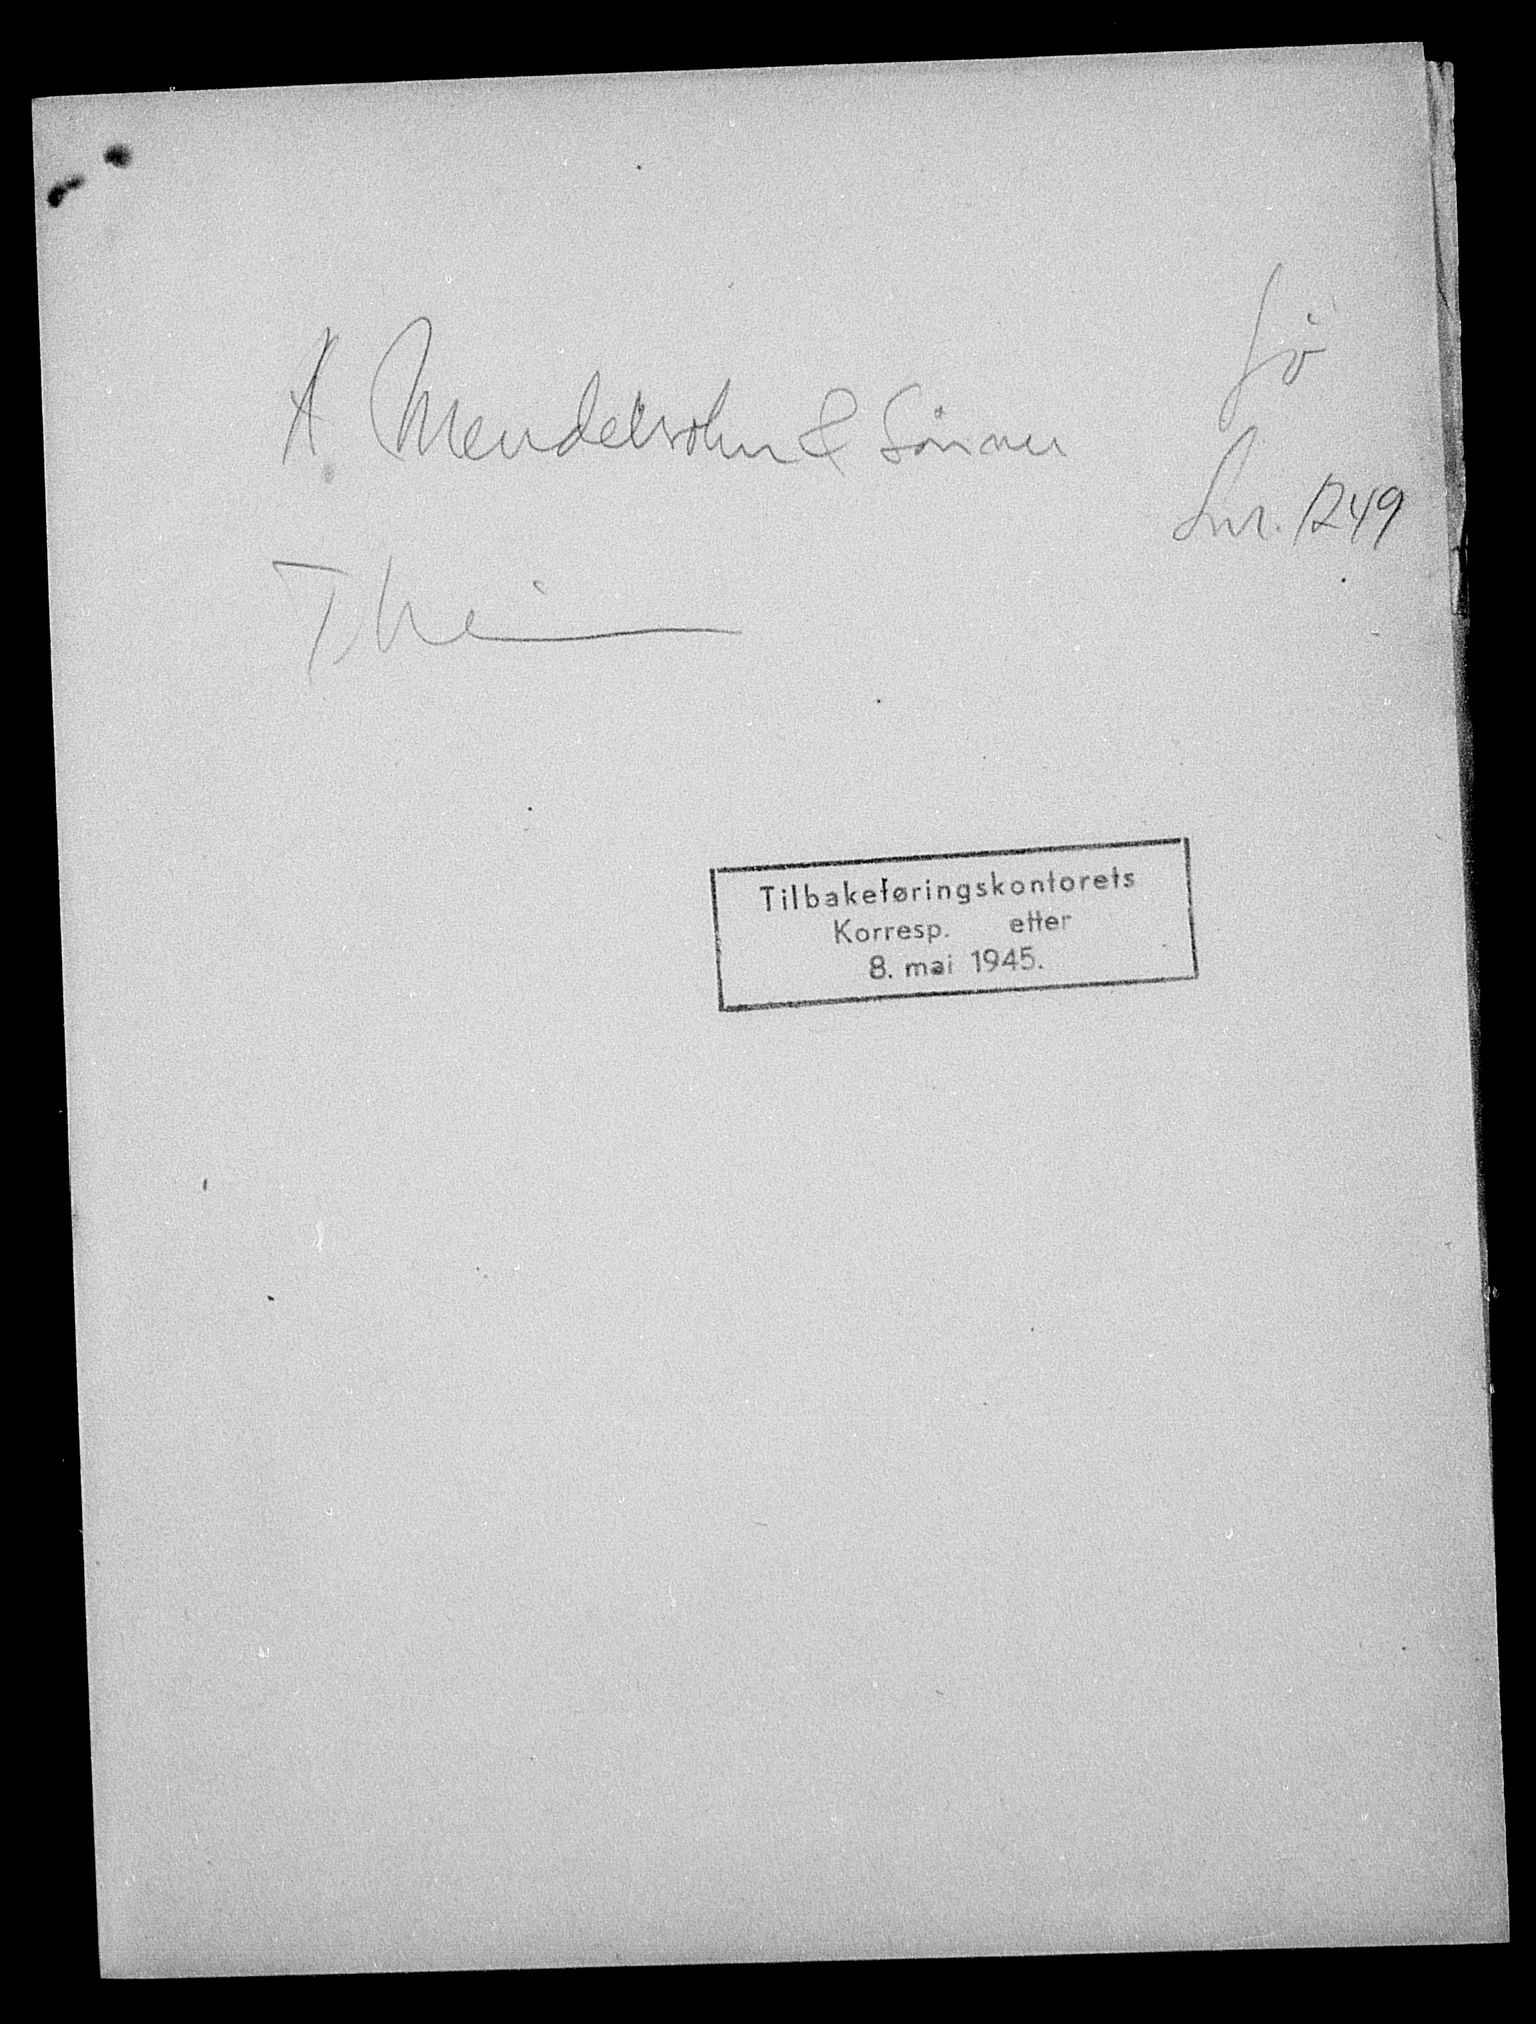 A Mendelsohn & Sönner
Jö
Lnr. 1249
Th
Tilbakeføringskontorets
Korresp. etter
8. mai 1945.